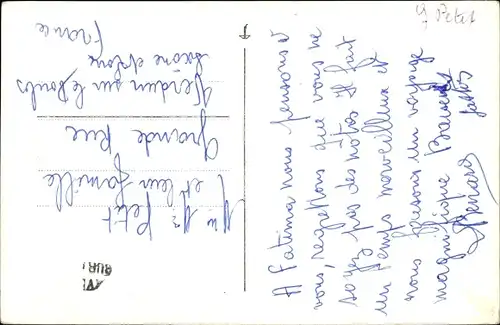 A Fatima nous pensons à
vous, regrettons que vous ne
soyez pas des nôtres il fait
un temps merveilleux et
nous faisons un voyage
magnifique Baisers
à tous
Mr Mme Petit
et leur famille
Grande Rue
Verdun sur le Doubs
Saône et Loire
France
Petit